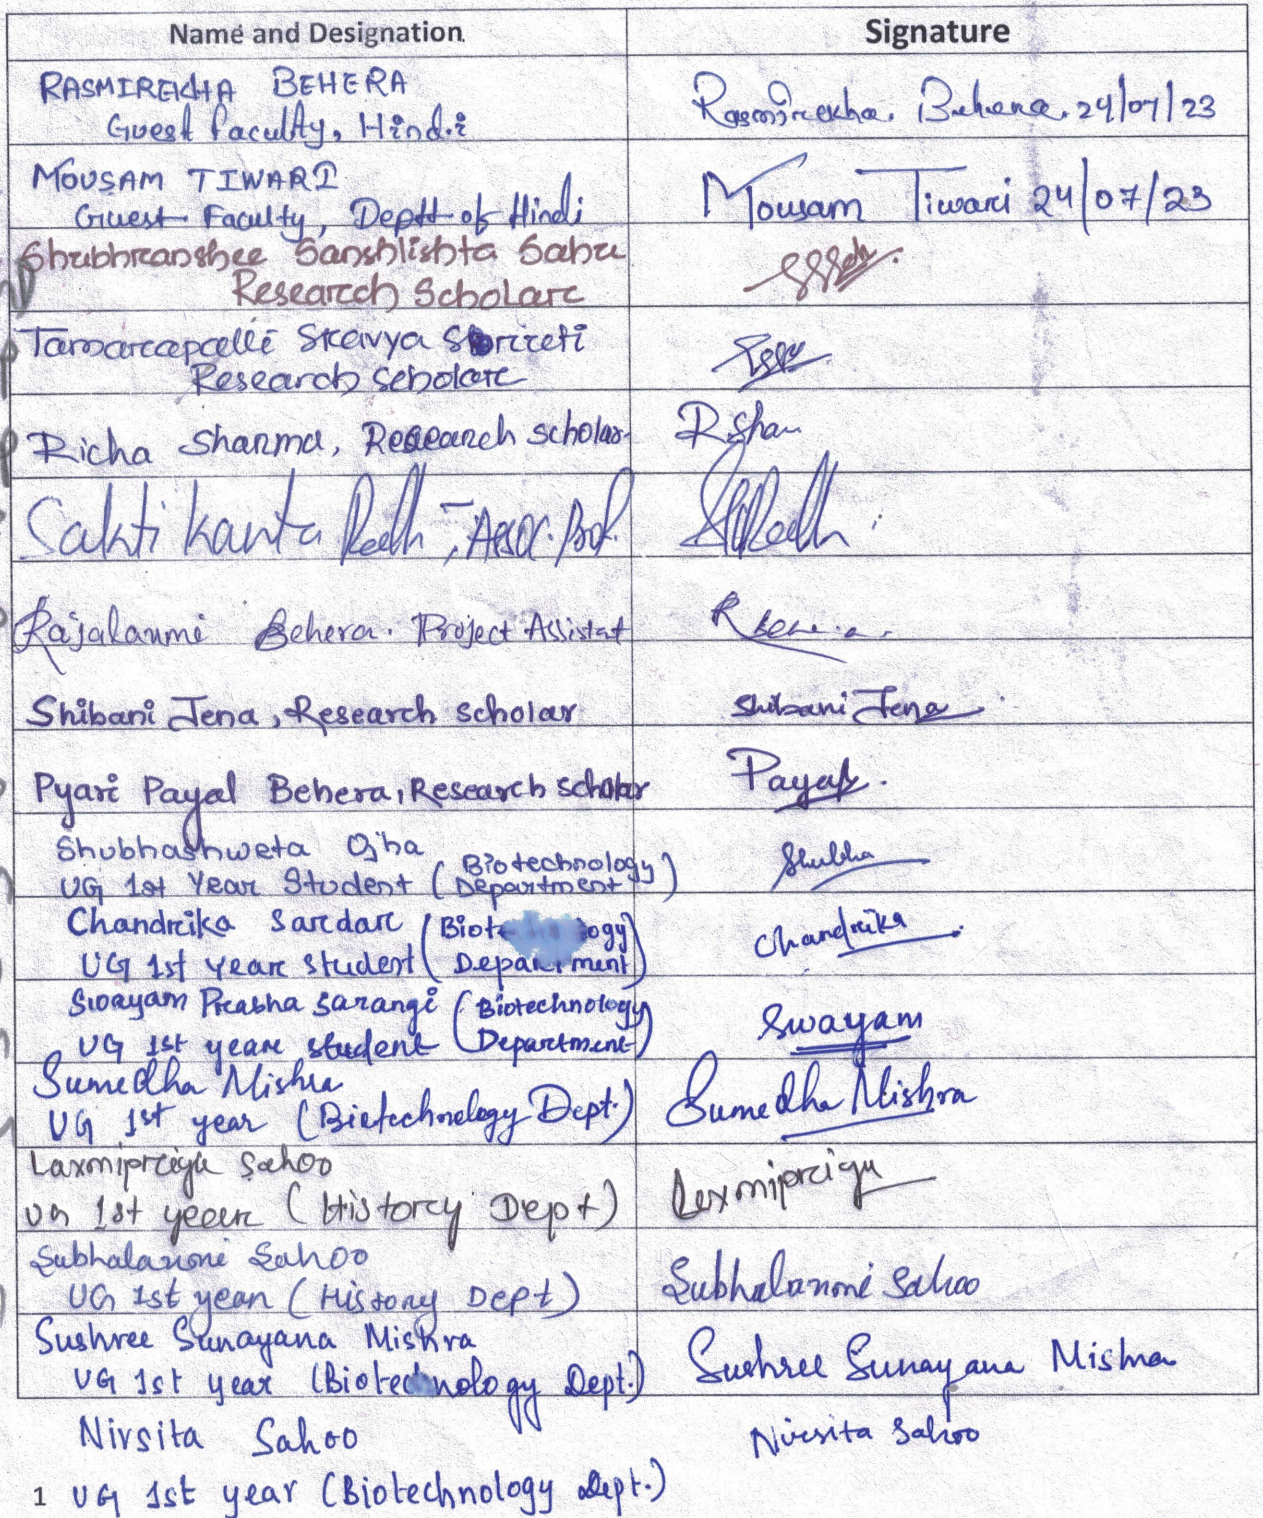 Name and Designation Signature
RASMIREKHA BEHERA
Guest faculty, Hindi Rasmirekha. Behera. 24/07/23
MOUSAM TIWARI
Guest Faculty, Deptt of Hindi Mousam Tiwari 24/07/23
Shubhranshee Sanshlishta Sahu
Research Scholar
Research Scholar
Richa Sharma, Research scholar RSha
Sakti Kanta Rath, Assoc. Prof.
Rajalaxmi Behera. Project Assistat R Behera.
Shibani Jena, Research scholar Shibani Jena
Pyari Payal Behera, Research scholar Payal.
Shubhashweta Ojha
UG 1st Year Student (Biotechnology Department) Shubha
Chandrika Sardar
UG 1st year student (Department) Chandrika
Swayam Prabha Sarangi
UG 1st year student (Biotechnology Department) Swayam
Sumedha Mishra
UG 1st year (Biotechnology Dept.) Sumedha Mishra
Laxmipriya Sahoo
UG 1st year (History Dept) Laxmipriya
Subhalaxmi Sahoo
UG 1st year (History Dept) Subhalaxmi Sahoo
Sushree Sunayana Mishra
UG 1st year (Biotechnology Dept.) Sushree Sunayana Mishra
Nirsita Sahoo Nirsita Sahoo
1 UG 1st year (Biotechnology Dept.)